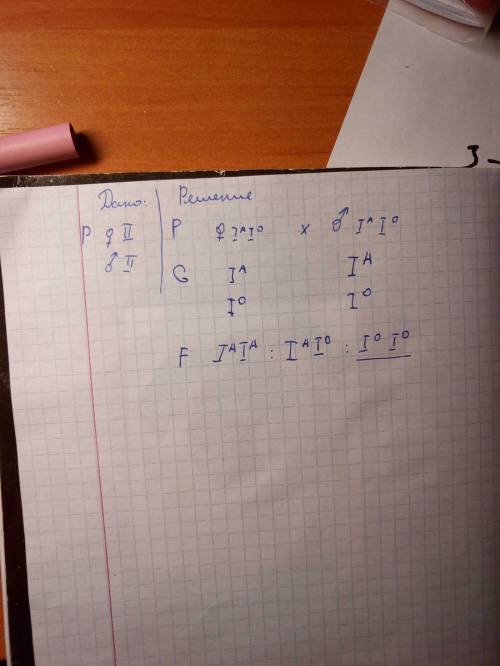 Дано:
P ♀ II
♂ II
Решение
P ♀ IᴬIᴼ x ♂ IᴬIᴼ
G Iᴬ Iᴬ
Iᴼ Iᴼ
F IᴬIᴬ : IᴬIᴼ : IᴼIᴼ
3